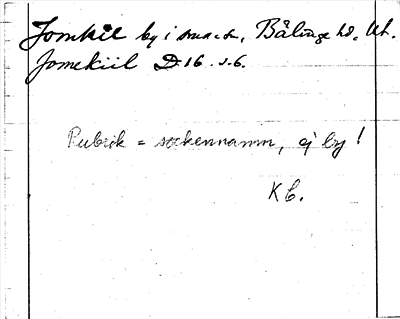 Jomkil by i s.n. s:n, Bälinge hd, Ul.
Jomekiil D:16 s.6.
Rubrik = sockennamn, ej by!
K C.